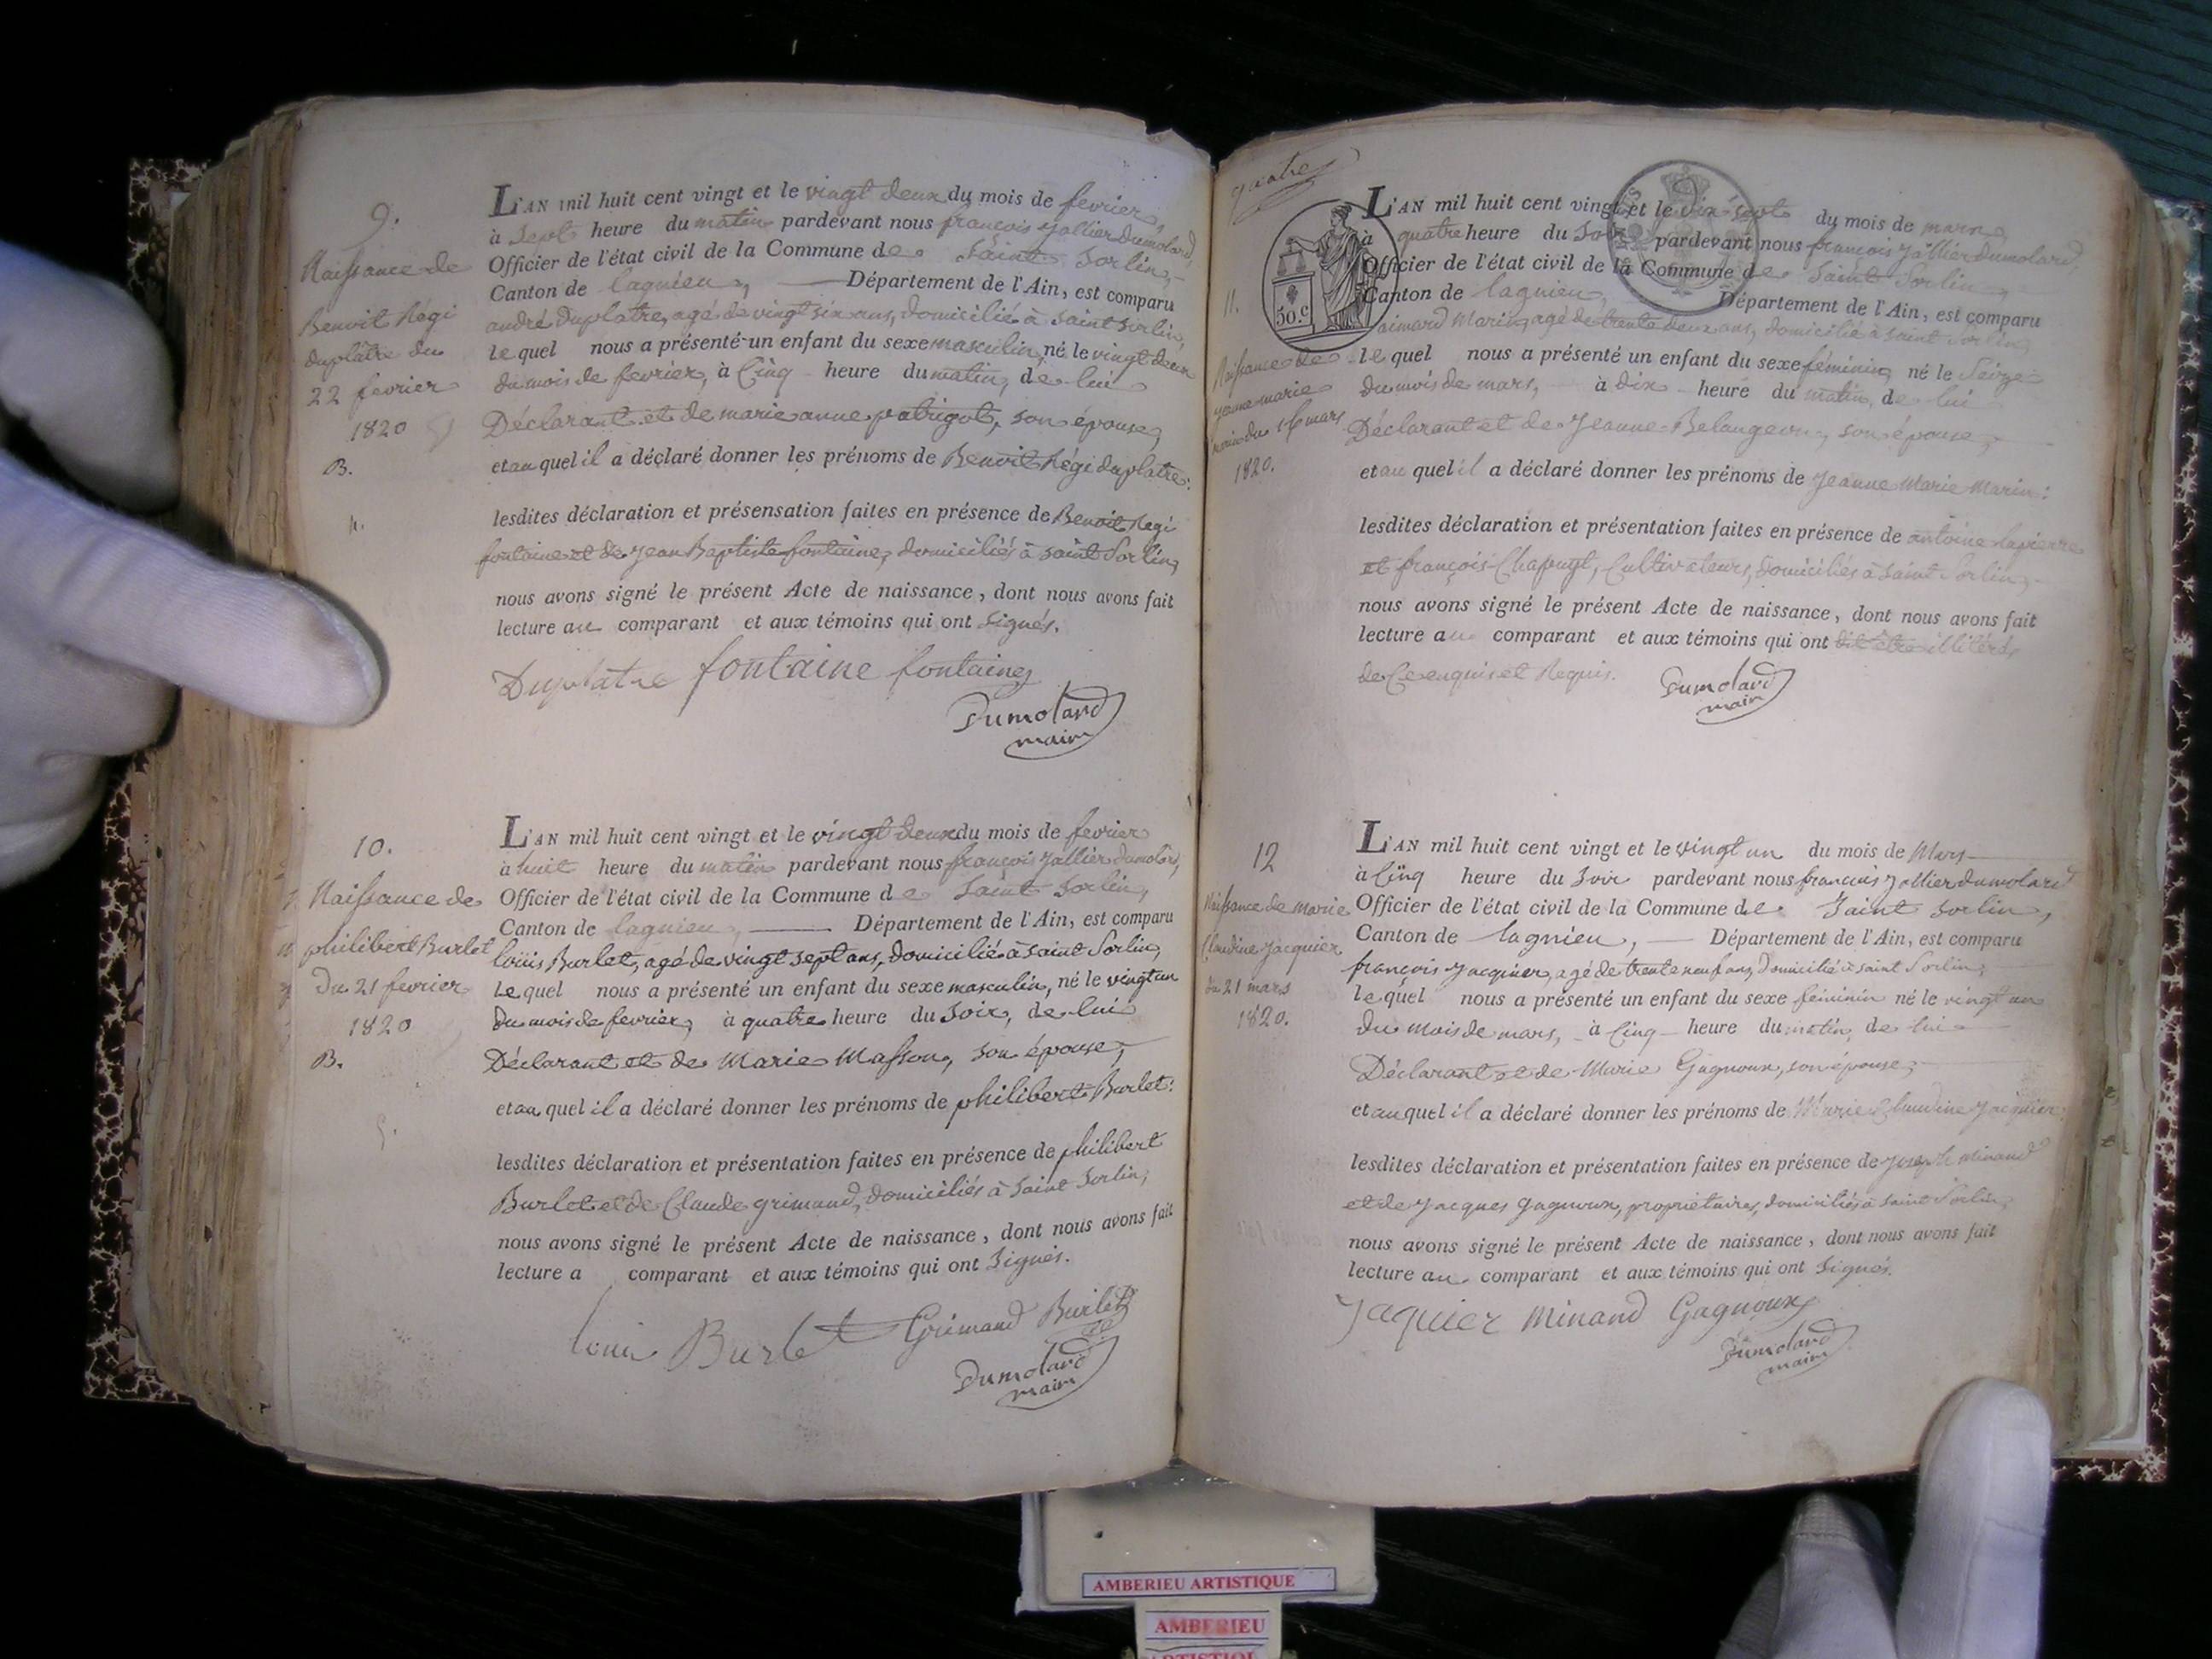 9.
Naissance de
Benoit Régi
duplâtre du
22 fevrier
1820
B.
4.
L'AN mil huit cent vingt et le vingt deux du mois de fevrier,
à Sept heure du matin pardevant nous françois Jallier dumolard,
Officier de l'état civil de la Commune de Saint Sorlin,
Canton de lagnieu, Département de l'Ain, est comparu
andré duplâtre, agé de vingt six ans, domicilié à saint sorlin,
le quel nous a présenté un enfant du sexe masculin, né le vingt deux
du mois de fevrier, à Cinq heure du matin, de lui
Déclarant et de marie anne patrigot, son épouse,
et au quel il a déclaré donner les prénoms de Benoit Régi duplatre:
lesdites déclaration et présensation faites en présence de Benoit Regi
fontaine et de Jean Baptiste fontaine, domiciliés à saint Sorlin,
nous avons signé le présent Acte de naissance, dont nous avons fait
lecture au comparant et aux témoins qui ont Signés.
Duplatre fontaine fontaine
Dumolard
maire
10.
Naissance de
philibert Burlet
Du 21 fevrier
1820
B.
5.
L'AN mil huit cent vingt et le vingt deux du mois de fevrier
à huit heure du matin pardevant nous françois Jallier dumolard,
Officier de l'état civil de la Commune de Saint Sorlin,
Canton de lagnieu, Département de l'Ain, est comparu
loüis Burlet, agé de vingt sept ans, domicilié à saint Sorlin,
Le quel nous a présenté un enfant du sexe masculin, né le vingt un
du mois de fevrier, à quatre heure du Soir, de lui
Déclarant et de Marie Masson, son épouse,
et au quel il a déclaré donner les prénoms de philibert Burlet:
lesdites déclaration et présentation faites en présence de philibert
Burlet et de Claude grimand, domiciliés à Saint Sorlin,
nous avons signé le présent Acte de naissance, dont nous avons fait
lecture a comparant et aux témoins qui ont Signés.
louis Burlet Grimand Burlet
Dumolard
maire
quatre
50.c
11.
Naissance de
jeanne marie
marin du 16 mars
1820.
L'AN mil huit cent vingt et le dix sept du mois de mars
à quatre heure du Soir pardevant nous françois Jallier dumolard
Officier de l'état civil de la Commune de Saint Sorlin,
Canton de lagnieu, Département de l'Ain, est comparu
aimard Marin, agé de trente deux ans, domicilié à saint Sorlin,
le quel nous a présenté un enfant du sexe féminin, né le Seize
du mois de mars, à dix heure du matin, de lui
Déclarant et de Jeanne Belangeon, son épouse,
et au quel il a déclaré donner les prénoms de Jeanne Marie Marin:
lesdites déclaration et présentation faites en présence de antoine lapierre
et françois Chapuyt, Cultivateurs, domiciliés à saint Sorlin,
nous avons signé le présent Acte de naissance, dont nous avons fait
lecture au comparant et aux témoins qui ont dit être illitérés
de Ce enquis et Requis.
Dumolard
maire
12
Naissance de marie
Claudine Jacquier
du 21 mars
1820.
L'AN mil huit cent vingt et le vingt un du mois de Mars
à Cinq heure du Soir pardevant nous françois Jallier dumolard
Officier de l'état civil de la Commune de Saint sorlin,
Canton de lagnieu, Département de l'Ain, est comparu
françois Jacquier, agé de trente neuf ans, domicilié à saint Sorlin,
le quel nous a présenté un enfant du sexe féminin né le vingt un
du mois de mars, à Cinq heure du matin, de lui
Déclarant et de Marie Gagnoux, son épouse,
et au quel il a déclaré donner les prénoms de Marie Claudine Jacquier:
lesdites déclaration et présentation faites en présence de Joseph Minand
et de Jacques gagnoux, propriétaires, domiciliés à saint Sorlin,
nous avons signé le présent Acte de naissance, dont nous avons fait
lecture au comparant et aux témoins qui ont Signés.
Jaquier Minand Gagnoux
Dumolard
maire
AMBERIEU ARTISTIQUE
AMBERIEU
ARTISTIQUE